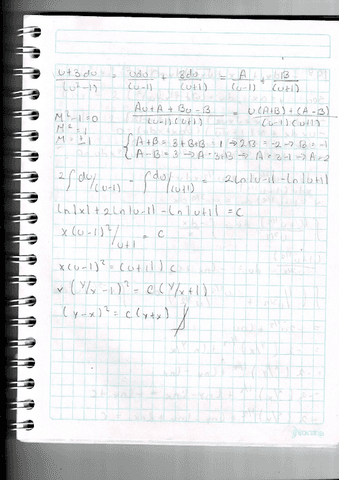 u+3du/(u²-1) = udu/(u-1) + 3du/(u+1) = A/(u-1) + B/(u+1)
Au+A+Bu-B/(u-1)(u+1) = u(A+B)+(A-B)/(u-1)(u+1)
M²-1=0
M²=1
M=±1
{A+B=3+B+B=1→2B=-2→B=-1
A-B=3→A=3+B→A=3-1→A=2
2∫du/(u-1) - ∫du/(u+1) = 2ln|u-1|-ln|u+1|
ln|x|+2ln|u-1|-ln|u+1|=c
x(u-1)²/u+1=c
x(u-1)²=(u+1)c
x(y/x-1)²=c(y/x+1)
(y-x)²=c(y+x)